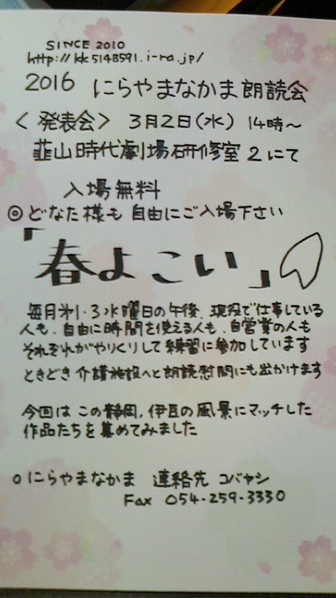 SINCE 2010
http://kk5148591.i-ra.jp/
2016 にらやまなかま朗読会
＜発表会＞ 3月2日(水) 14時〜
韮山時代劇場研修室2にて
入場無料
◎どなた様も 自由にご入場下さい
「春よこい」
毎月第1・3水曜日の午後、現役で仕事している
人も、自由に時間を使える人も、自営業の人も
それぞれがやりくりして練習に参加しています
ときどき介護施設へと朗読慰問にも出かけます
今回はこの静岡、伊豆の風景にマッチした
作品たちを集めてみました
○にらやまなかま 連絡先 コバヤシ
Fax 054-259-3330